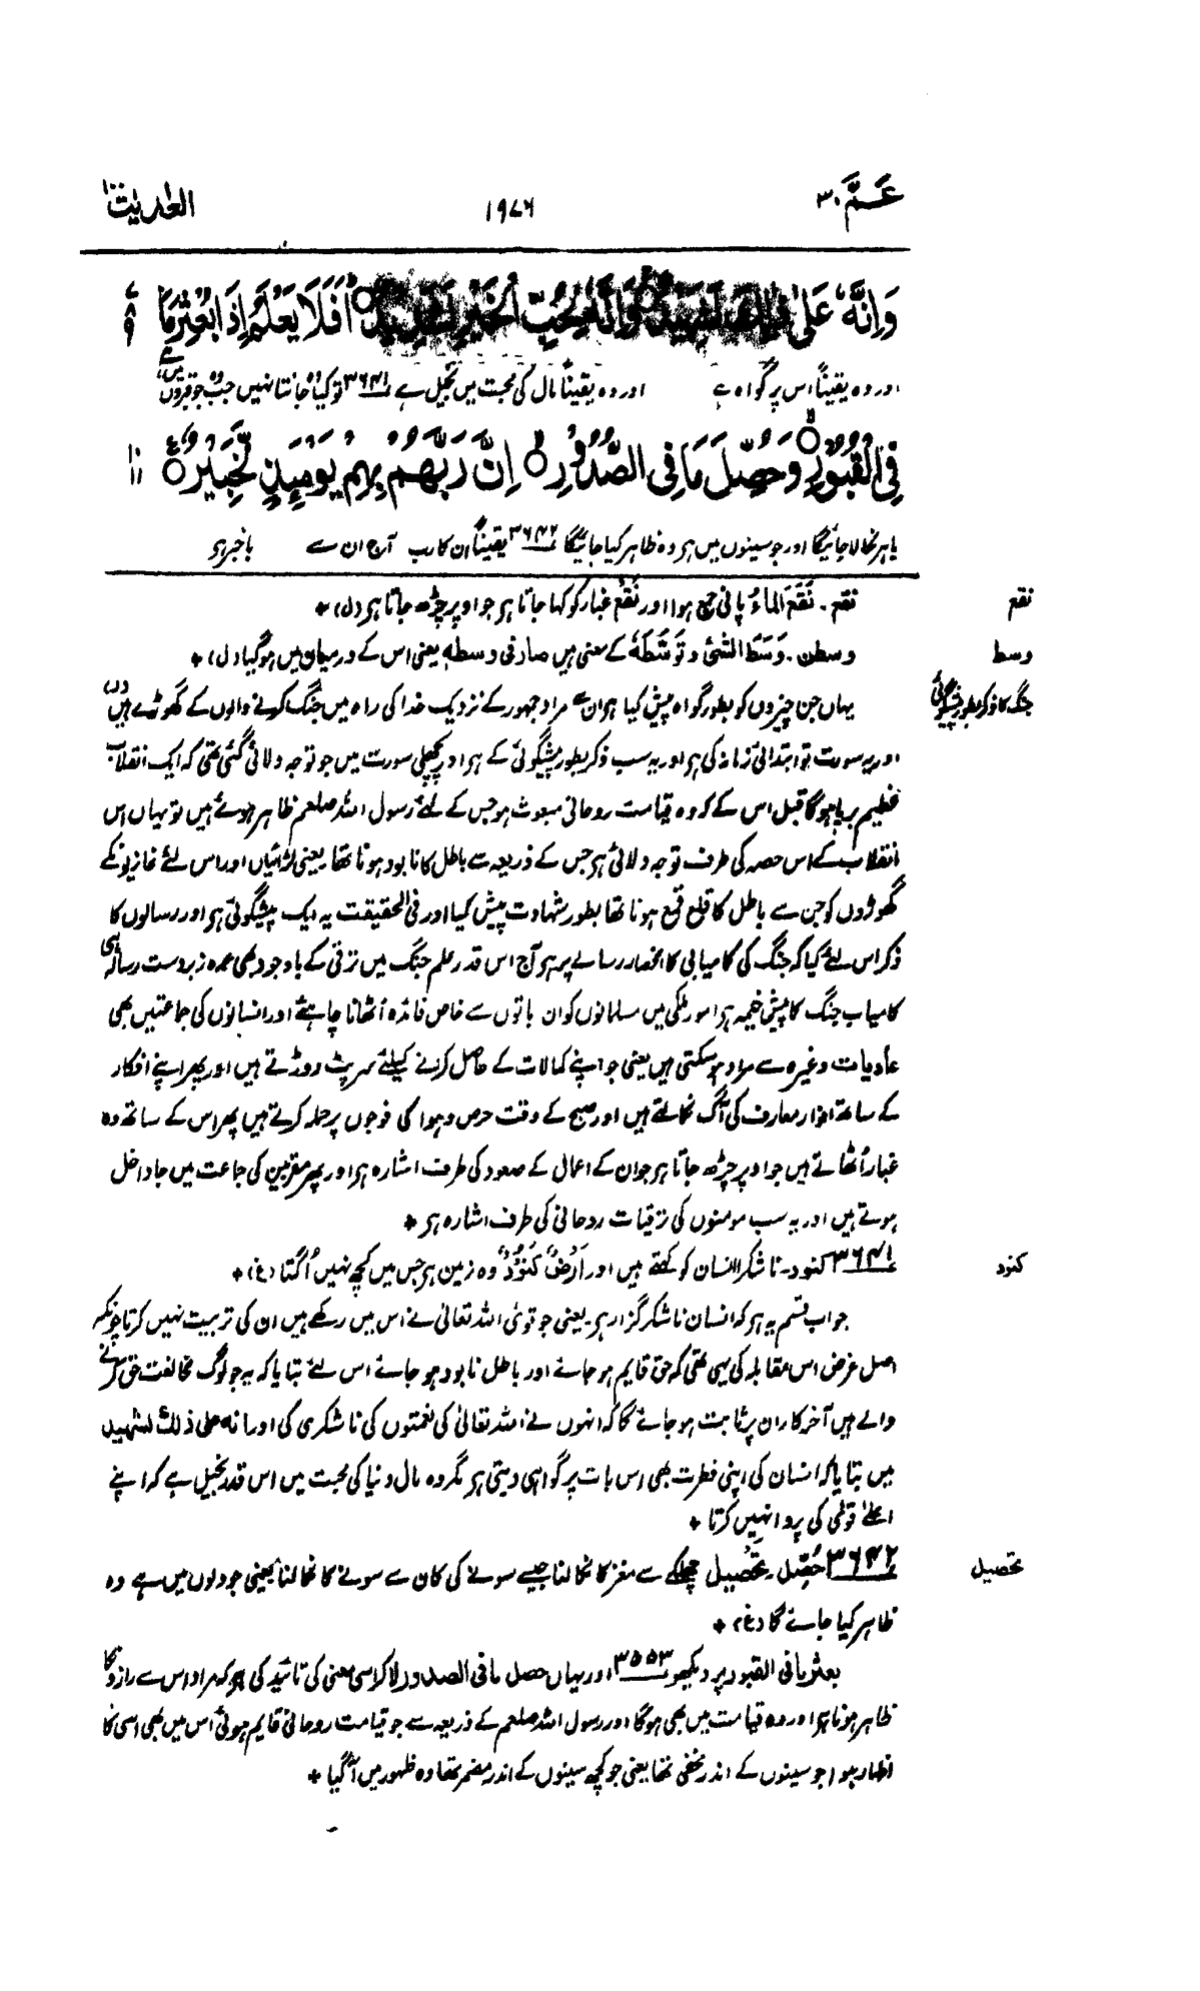 عَمَّ ٣٠
١٩٧٦
العٰدیٰت ١٠٠
وَاِنَّهٗ عَلٰى ذٰلِكَ لَشَهِيْدٌ ۚ وَاِنَّهٗ لِحُبِّ الْخَيْرِ لَشَدِيْدٌ ؕ اَفَلَا يَعْلَمُ اِذَا بُعْثِرَ مَا
اور وہ یقیناً اس پر گواہ ہے اور وہ یقیناً مال کی محبت میں بخیل ہے ٣٦٤١ تو کیا وہ جانتا نہیں جب وہ جو قبروں میں ہے
فِى الْقُبُوْرِ ۙ وَحُصِّلَ مَا فِى الصُّدُوْرِ ۙ اِنَّ رَبَّهُمْ بِهِمْ يَوْمَىِٕذٍ لَّخَبِيْرٌ
باہر نکالا جائیگا اور جو سینوں میں ہر وہ ظاہر کیا جائیگا ٣٦٤٢ یقیناً ان کا رب آج ان سے باخبر ہر
نقع
نقع ۔ نَقَعَ الماءُ پانی جمع ہوا اور نَقْع غبار کو کہا جاتا ہر جو اوپر چڑھ جاتا ہر (ل) ٭
وسط
وسطن ۔ وَسَطَ الشئَ و تَوَسَّطَهٗ کے معنی ہیں صار فی وسطہٖ یعنی اس کے درمیان میں ہو گیا (ل) ٭
جنگ کا ذکر بطور پیشگوئی
یہاں جن چیزوں کو بطور گواہ پیش کیا ہر ان سے مراد جمہور کے نزدیک خدا کی راہ میں جنگ کرنے والوں کے گھوڑے ہیں (ل)
اور یہ سورت تو ابتدائی زمانہ کی ہر اور یہ سب ذکر بطور پیشگوئی کے ہر اور پچھلی سورت میں جو توجہ دلائی گئی تھی کہ ایک انقلاب
عظیم برپا ہوگا قبل اس کے کہ وہ قیامت روحانی مبعوث ہو جس کے لئے رسول اللہ صلعم ظاہر ہوئے ہیں تو یہاں اس
انقلاب کے اس حصہ کی طرف توجہ دلائی ہر جس کے ذریعہ سے باطل کا نابود ہونا تھا یعنی لڑائیاں اور اس لئے غازیوں کے
گھوڑوں کو جن سے باطل کا قلع قمع ہونا تھا بطور شہادت پیش کیا اور فی الحقیقت یہ ایک پیشگوئی ہر اور رسالوں کا
ذکر اس لئے کیا کہ جنگ کی کامیابی کا انحصار رسالے پر ہر آج اس قدر علم جنگ میں ترقی کے باوجود بھی عمدہ زبردست رسالہ ہی
کامیاب جنگ کا پیش خیمہ ہر امور ملکی میں مسلمانوں کو ان باتوں سے خاص فائدہ اٹھانا چاہئے اور انسانوں کی جماعتیں بھی
عادیات وغیرہ سے مراد ہو سکتی ہیں یعنی جو اپنے کمالات کے حاصل کرنے کیلئے سرپٹ دوڑتے ہیں اور پھر اپنے افکار
کے ساتھ انوار معارف کی آگ نکالتے ہیں اور صبح کے وقت حرص و ہوا کی فوجوں پر حملہ کرتے ہیں پھر اس کے ساتھ وہ
غبار اٹھاتے ہیں جو اوپر چڑھ جاتا ہر جو ان کے اعمال کے صعود کی طرف اشارہ ہر اور پھر مقربین کی جماعت میں جا داخل
ہوتے ہیں اور یہ سب مومنوں کی ترقیات روحانی کی طرف اشارہ ہر ٭
کنود
٣٦٤١ کنود ۔ ناشکر انسان کو کہتے ہیں اور اَرْضٌ کَنُوْدٌ وہ زمین ہر جس میں کچھ نہیں اُگتا (غ) ٭
جواب قسم یہ ہر کہ انسان ناشکر گزار ہر یعنی جو قویٰ اللہ تعالیٰ نے اس میں رکھے ہیں ان کی تربیت نہیں کرتا چونکہ
اصل غرض اس مقابلہ کی یہی تھی کہ حق قایم ہو جائے اور باطل نابود ہو جائے اس لئے بتایا کہ یہ جو لوگ مخالفت حق کرنے
والے ہیں آخر کار ان پر ثابت ہو جائے گا کہ انہوں نے اللہ تعالیٰ کی نعمتوں کی ناشکری کی اور انہ علی ذلک لشہید
میں بتایا کہ انسان کی اپنی فطرت بھی اس بات پر گواہی دیتی ہر مگر وہ مال و دنیا کی محبت میں اس قدر بخیل ہے کہ اپنے
اعلیٰ قویٰ کی پروا نہیں کرتا ٭
تحصیل
٣٦٤٢ حُصِّل ۔ تحصیل چھلکے سے مغز کا نکالنا جیسے سونے کی کان سے سونے کا نکالنا یعنی جو دلوں میں ہے وہ
ظاہر کیا جائے گا (غ) ٭
بعثر ما فی القبور پر دیکھو ٣٥٥٣ اور یہاں حصل ما فی الصدور لا کر اسی معنی کی تائید کی ہر کہ مراد اس سے رازوں کا
ظاہر ہونا ہر اور وہ قیامت میں بھی ہوگا اور رسول اللہ صلعم کے ذریعہ سے جو قیامت روحانی قایم ہوئی اس میں بھی اسی کا
اظہار ہوا جو سینوں کے اندر مخفی تھا یعنی جو کچھ سینوں کے اندر مضمر تھا وہ ظہور میں آگیا ٭